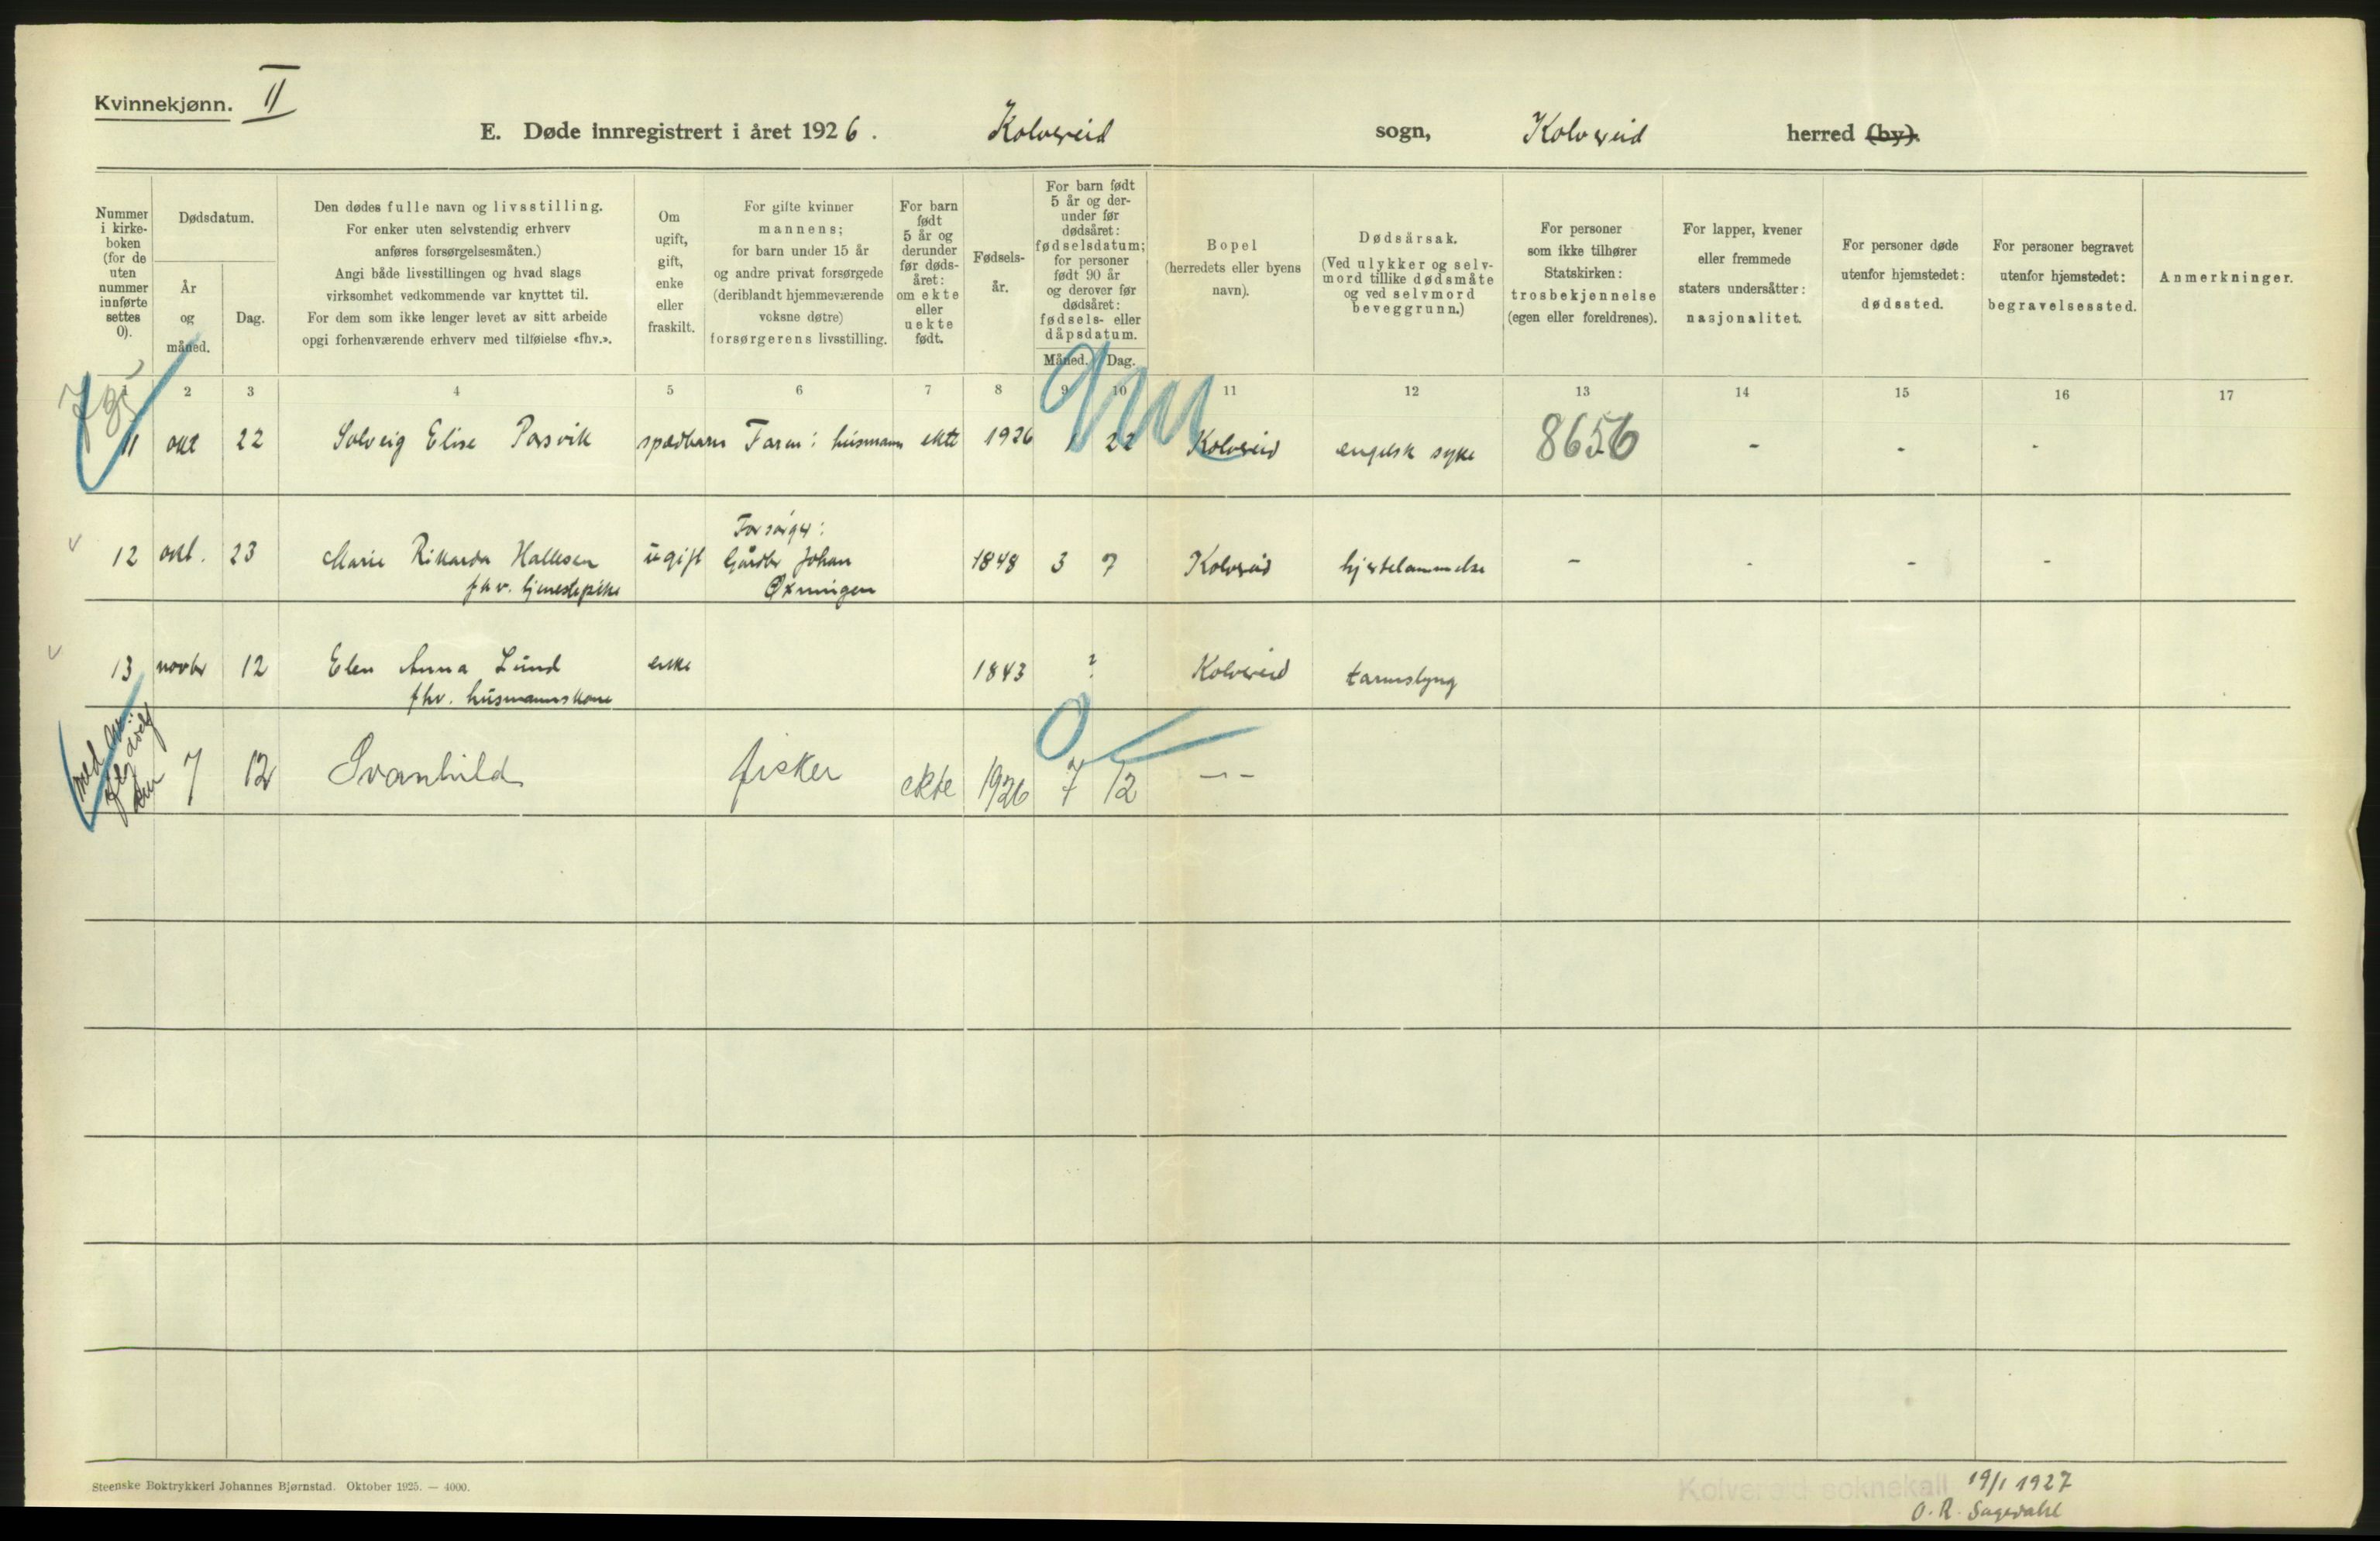 Kvinnekjønn. II
E. Døde innregistrert i året 1926. Kolvereid sogn, Kolvereid herred (by).
Nummer i kirke-boken (for de uten nummer innførte settes 0).
Dødsdatum.
År og måned.
Dag.
Den dødes fulle navn og livsstilling.
For enker uten selvstendig erhverv
anføres forsørgelsesmåten.)
Angi både livsstillingen og hvad slags
virksomhet vedkommende var knyttet til.
For dem som ikke lenger levet av sitt arbeide
opgi forhenværende erhverv med tilføielse «fhv.».
Om
ugift,
gift,
enke
eller
fraskilt.
For gifte kvinner
mannens;
for barn under 15 år
og andre privat forsørgede
(deriblandt hjemmeværende
voksne døtre)
forsørgerens livsstilling.
For barn
født
5 år og
derunder
før døds-
året:
om ekte
eller
uekte
født.
Fødsels-
år.
For barn født
5 år og der-
under før
dødsåret:
fødselsdatum;
for personer
født 90 år
og derover før
dødsåret:
fødsels- eller
dåpsdatum.
Måned. Dag.
Bopel
(herredets eller byens
navn).
Dødsårsak.
(Ved ulykker og selv-
mord tillike dødsmåte
og ved selvmord
beveggrunn.)
For personer
som ikke tilhører
Statskirken:
trosbekjennelse
(egen eller foreldrenes).
For lapper, kvener
eller fremmede
staters undersåtter:
nasjonalitet.
For personer døde
utenfor hjemstedet:
dødssted.
For personer begravet
utenfor hjemstedet:
begravelsessted.
Anmerkninger.
1 2 3 4 5 6 7 8 9 10 11 12 13 14 15 16 17
11 okt 22 Solveig Elise Porsvik spædbarn Faren: husmann ekte 1926 1 22 Kolvereid engelsk syke 8656 - - -
Forsørger:
12 okt. 23 Marie Rikarda Hallesen ugift Gårdbr Johan 1848 3 7 Kolvereid hjertelammelse - - - -
fhv. tjenestepike Øxningen
13 novbr 12 Elen Anna Lund enke 1843 ? Kolvereid tarmslyng
fhv. husmannskone
7 12 Svanhild fisker ekte 1926 7 12 - -
Steenske Boktrykkeri Johannes Bjørnstad. Oktober 1925. — 4000.
Kolvereid soknekall 19/1 1927
O. R. Sagedahl